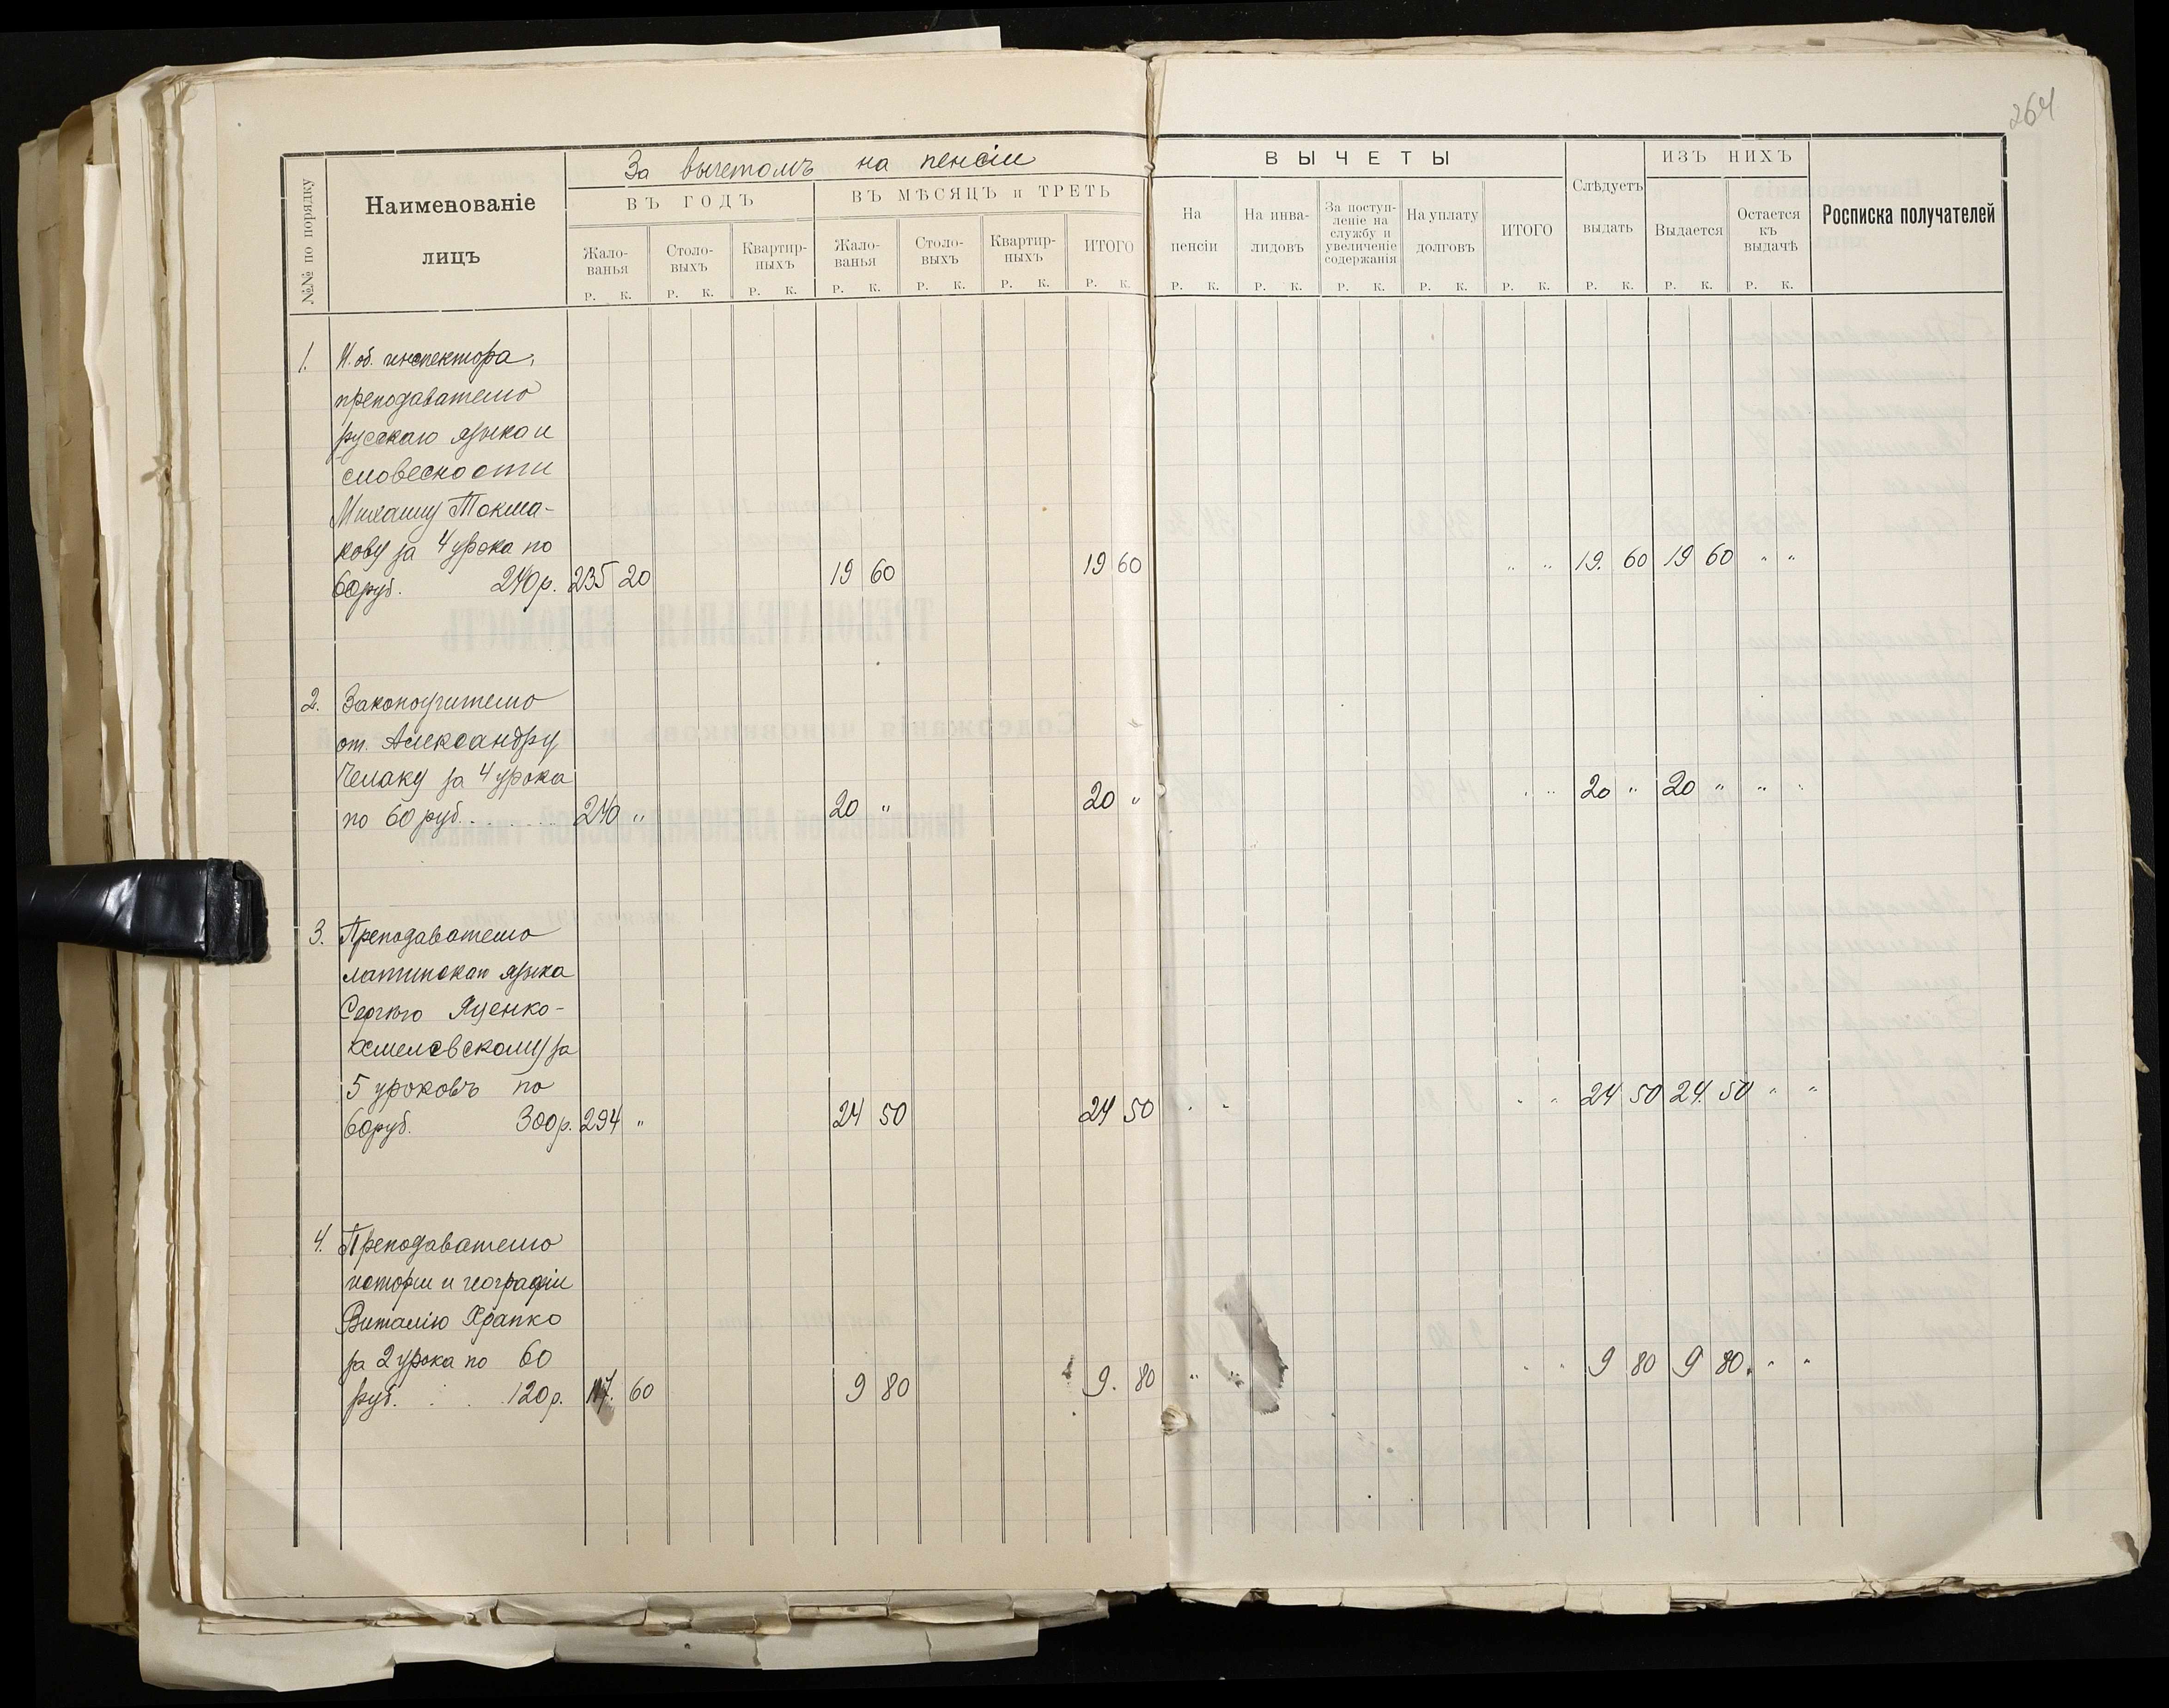 264
№№ по порядку
Наименованіе
лицъ
За вычетомъ на пенсіи
ВЪ ГОДЪ
ВЪ МѢСЯЦЪ и ТРЕТЬ
Жало-
ванья
Столо-
выхъ
Квартир-
ныхъ
Жало-
ванья
Столо-
выхъ
Квартир-
ныхъ
ИТОГО
Р. К. Р. К. Р. К. Р. К. Р. К. Р. К. Р. К.
ВЫЧЕТЫ
На
пенсіи
На инва-
лидовъ
За поступ-
леніе на
службу и
увеличеніе
содержанія
На уплату
долговъ
ИТОГО
Слѣдуетъ
выдать
ИЗЪ НИХЪ
Выдается
Остается
къ
выдачѣ
Росписка получателей
Р. К. Р. К. Р. К. Р. К. Р. К. Р. К. Р. К. Р. К.
1. И. об. инспектора,
преподавателю
русскаго языка и
словесности
Михаилу Токма-
кову за 4 урока по
60 руб. 240 р. 235 20 19 60 19 60 " " 19. 60 19 60 " "
2. Законоучителю
от. Александру
Чемаку за 4 урока
по 60 руб. . . . . . . 240 " 20 " 20 " " " 20 " 20 " " "
3. Преподавателю
латинскаго языка
Сергѣю Яценко-
Хмелевскому за
5 уроковъ по
60 руб. 300 р. 294 " 24 50 24 50 " " " " 24 50 24. 50 " "
4. Преподавателю
исторіи и географіи
Виталію Храпко
за 2 урока по 60
руб. . . . 120 р. 117. 60 9 80 9. 80 " " " " 9 80 9 80. " "